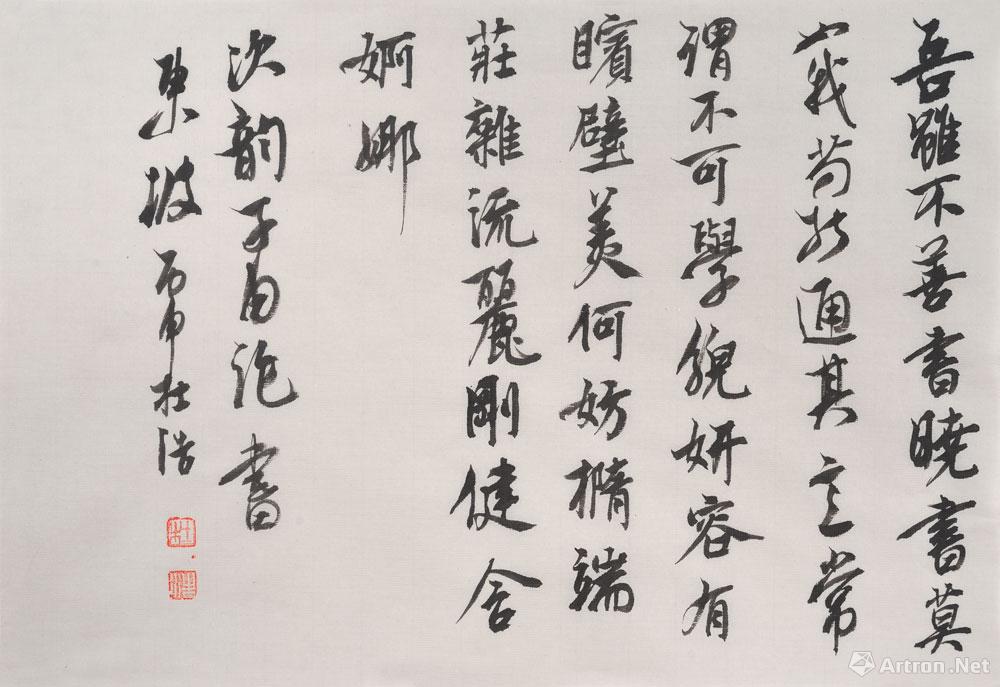 吾雖不善書曉書莫
我苟能通其意常
謂不可學貌妍容有
矉璧美何妨橢端
莊雜流麗剛健含
婀娜
次韻子由論書
東坡丙申杜浩
Artron.Net